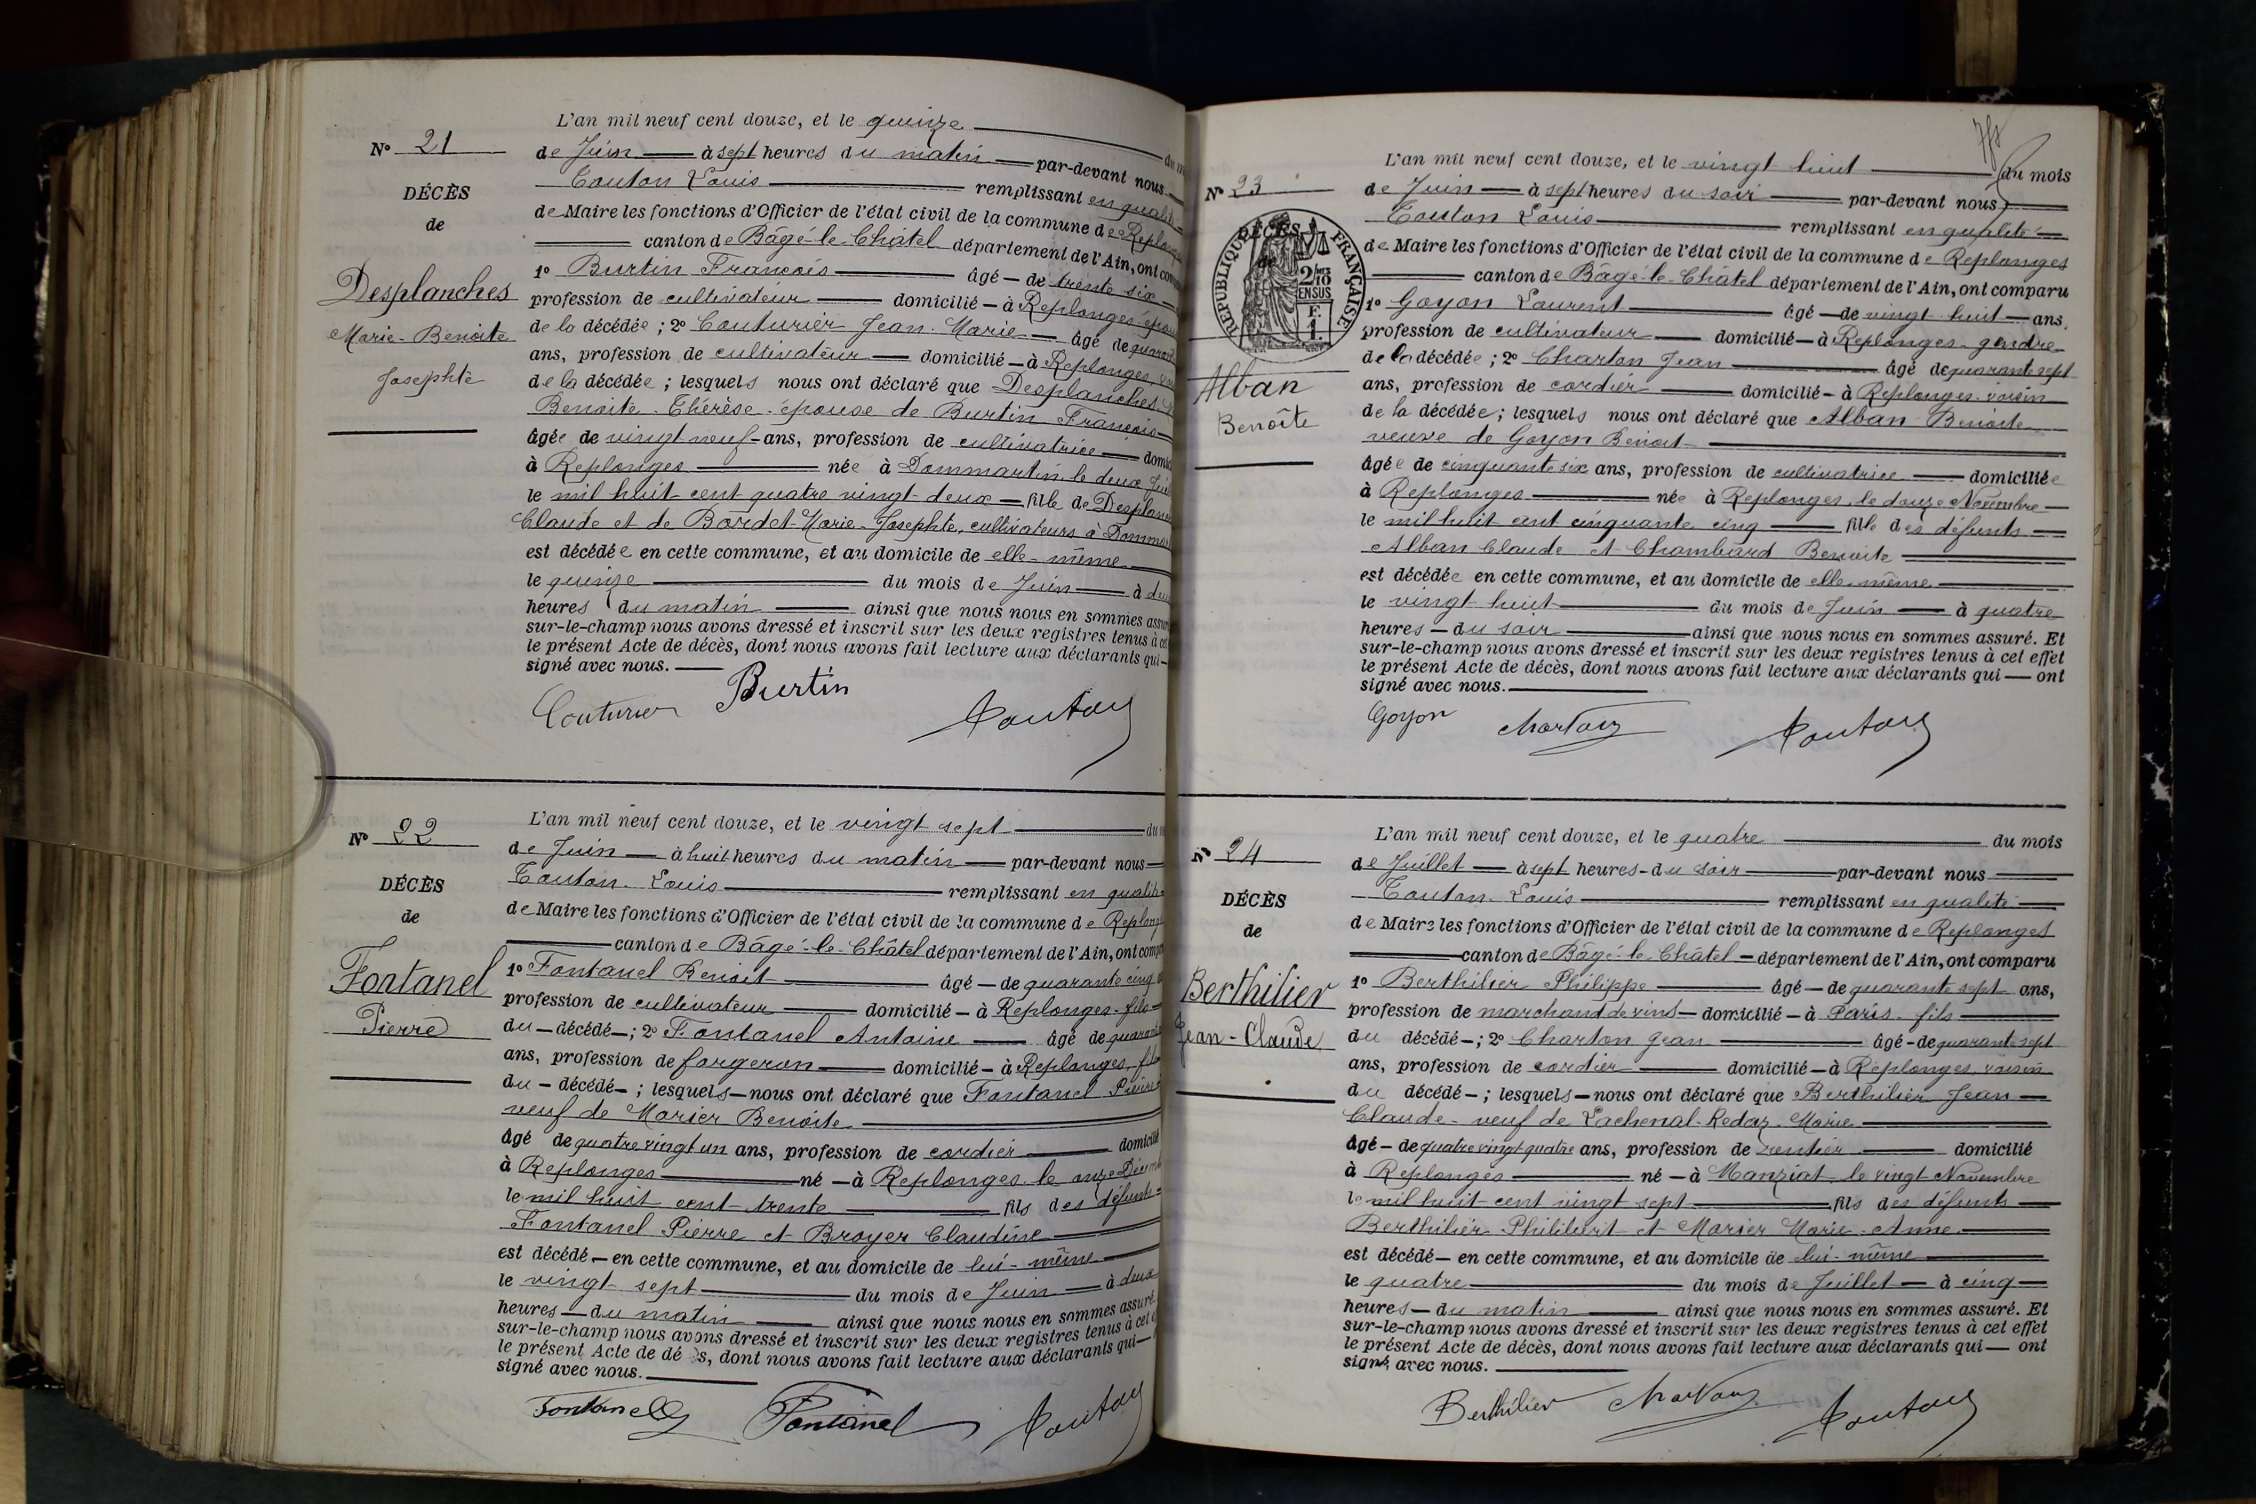 L'an mil neuf cent douze, et le quinze
N° 21
de Juin à sept heures du matin par-devant nous
Touton Louis remplissant en qualité
DÉCÈS
de Maire les fonctions d'Officier de l'état civil de la commune de
de
canton de Bâgé-le-Châtel département de l'Ain, ont
1° Burtin François âgé de trente six
Desplanches
profession de cultivateur domicilié à Replonges
Marie-Benoite
de la décédée ; 2° Couturier Jean-Marie âgé de
Josephte
ans, profession de cultivateur domicilié à Replonges
de la décédée ; lesquels nous ont déclaré que Desplanches
Benoite-Thérèse épouse de Burtin François
âgée de vingt neuf ans, profession de cultivatrice
à Replonges née à Dommartin le deux
le mil huit cent quatre vingt deux fille de
Claude et de Bardet Marie-Josephte, cultivateurs à
est décédée en cette commune, et au domicile de elle-même
le quinze du mois de Juin à
heures du matin ainsi que nous nous en sommes
sur-le-champ nous avons dressé et inscrit sur les deux registres tenus à
le présent Acte de décès, dont nous avons fait lecture aux déclarants qui
signé avec nous.
Couturier Burtin Touton
L'an mil neuf cent douze, et le vingt sept
N° 22
de Juin à huit heures du matin par-devant nous
Touton Louis remplissant en qualité
DÉCÈS
de Maire les fonctions d'Officier de l'état civil de la commune de
de
canton de Bâgé-le-Châtel département de l'Ain, ont
Fontanel
1° Fontanel Benoit âgé de quarante cinq
Pierre
profession de cultivateur domicilié à Replonges fils
du décédé ; 2° Fontanel Antoine âgé de
ans, profession de forgeron domicilié à Replonges,
du décédé ; lesquels nous ont déclaré que Fontanel Pierre
veuf de Morier Benoite
âgé de quatre vingt un ans, profession de cordier domicilié
à Replonges né à Replonges le onze
le mil huit cent trente fils des défunts
Fontanel Pierre et Broyer Claudine
est décédé en cette commune, et au domicile de lui-même
le vingt sept du mois de Juin à deux
heures du matin ainsi que nous nous en sommes assuré.
sur-le-champ nous avons dressé et inscrit sur les deux registres tenus à cet
le présent Acte de dé s, dont nous avons fait lecture aux déclarants qui
signé avec nous.
Fontanel Fontanel Touton
L'an mil neuf cent douze, et le vingt huit du mois
N° 23
de Juin à sept heures du soir par-devant nous
Touton Louis remplissant en qualité
DÉCÈS
de Maire les fonctions d'Officier de l'état civil de la commune de Replonges
de
RÉPUBLIQUE FRANÇAISE
2/10 EN SUS
F. 1.
canton de Bâgé-le-Châtel département de l'Ain, ont comparu
1° Goyon Laurent âgé de vingt huit ans,
profession de cultivateur domicilié à Replonges gendre
Alban
de la décédée ; 2° Charton Jean âgé de quarante sept
Benoîte
ans, profession de cordier domicilié à Replonges voisin
de la décédée ; lesquels nous ont déclaré que Alban Benoite
veuve de Goyon Benoit
âgée de cinquante six ans, profession de cultivatrice domiciliée
à Replonges née à Replonges le douze Novembre
le mil huit cent cinquante cinq fille des défunts
Alban Claude et Chambard Benoite
est décédée en cette commune, et au domicile de elle-même
le vingt huit du mois de Juin à quatre
heures du soir ainsi que nous nous en sommes assuré. Et
sur-le-champ nous avons dressé et inscrit sur les deux registres tenus à cet effet
le présent Acte de décès, dont nous avons fait lecture aux déclarants qui ont
signé avec nous.
Goyon Charton Touton
L'an mil neuf cent douze, et le quatre du mois
N° 24
de Juillet à sept heures du soir par-devant nous
Touton Louis remplissant en qualité
DÉCÈS
de Maire les fonctions d'Officier de l'état civil de la commune de Replonges
de
canton de Bâgé-le-Châtel département de l'Ain, ont comparu
Berthilier
1° Berthilier Philippe âgé de quarante sept ans,
Jean-Claude
profession de marchand de vins domicilié à Paris fils
du décédé ; 2° Charton Jean âgé de quarante sept
ans, profession de cordier domicilié à Replonges, voisin
du décédé ; lesquels nous ont déclaré que Berthilier Jean
Claude veuf de Lachenal-Redaz Marie
âgé de quatre vingt quatre ans, profession de rentier domicilié
à Replonges né à Manziat le vingt Novembre
le mil huit cent vingt sept fils des défunts
Berthilier Philibert et Morier Marie-Anne
est décédé en cette commune, et au domicile de lui-même
le quatre du mois de Juillet à cinq
heures du matin ainsi que nous nous en sommes assuré. Et
sur-le-champ nous avons dressé et inscrit sur les deux registres tenus à cet effet
le présent Acte de décès, dont nous avons fait lecture aux déclarants qui ont
signé avec nous.
Berthilier Charton Touton